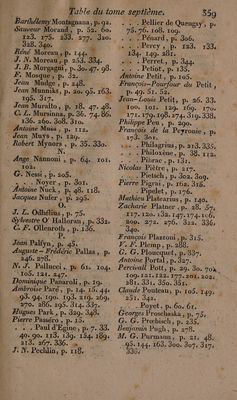 Table du tome septième. 359
Barthélemy Montagnana, p. 92.
Sauveur Morand, p. 52. 60.
123. 175. 233. 277. 320.
328. 340.
René Moreau, p. 144.
J. N. Moreau, p. 253. 334.
J. B. Morgagni, p. 30. 47. 98.
F. Mosque, p. 32.
Jean Mudge, p. 248.
Jean Munniks, p. 20. 95. 163.
195. 317.
Jean Muralto, p. 18. 47. 48.
C. L. Mursinna, p. 36. 74. 86.
136. 260. 308. 310.
Antoine Musa, p. 112.
Jean Muys, p. 129.
Robert Mynors, p. 35. 330.
N.
Ange Nannoni, p. 64. 101.
102.
G. Nessi, p. 205.
. . . Noyer, p. 301.
Antoine Nuck, p. 48. 118.
Jacques Nufer, p. 295.
O.
J. L. Odhélius, p. 75.
Sylvestre O Halloran, p. 331.
C. F. Ollenroth, p. 136.
P.
Jean Palfyn, p. 45.
Auguste-Frédéric Pallas, p.
246. 278.
N. J. Pallucci, p. 61. 104.
105. 121. 247.
Dominique Panaroli, p. 19.
Ambroise Paré, p. 14. 15. 44.
93. 94. 190. 193. 219. 269.
270. 286. 295. 314. 337.
Hugues Park, p. 329. 348.
Pierre Paunero, p. 15.
. . . Paul d'Egine, p. 7. 33.
40. 90. 113. 139. 154. 189.
213. 267. 336.
J. N. Pechlin, p. 118.
. . . Pellier de Quengsy, p.
75. 76. 108. 109.
. . . Pénard, p. 306.
. . . Percy, p. 123. 133.
134. 149. 281.
. . . Perret, p. 344.
. . . Petiot, p. 135.
Antoine Petit, p. 105.
François-Pourfour du Petit,
p. 49. 51. 52.
Jean-Louis Petit, p. 26. 33.
100. 101. 129. 169. 170.
171. 179. 198. 274. 319. 338.
Philippe Peu, p. 299.
François de la Peyronie, p.
173. 301.
. . . Philagrius, p. 213. 335.
. . . Philoxène, p. 38. 112.
. . . Pibrac, p. 131.
Nicolas Piètre, p. 217.
. . . Pietsch, p. 302. 309.
Pierre Pigrai, p. 162. 315.
. . . Pipelet, p. 176.
Mathieu Platearius, p. 140.
Zacharie Platner, p. 28. 57.
117. 120. 132. 147. 174. 176.
199. 272. 276. 312. 336.
340.
François Plazzoni, p. 315.
V. F. Plemp, p. 288.
G. G. Ploucquet, p. 337.
Antoine Portal, p. 327.
Percivall Pott, p. 29. 30. 70.
109. 121. 122. 177. 201. 202.
281. 331. 350. 351.
Claude Pouteau, p. 105. 149.
251. 342.
. . . Poyet, p. 60. 61.
Georges Prochaska, p. 75.
G. G. Prochisch, p. 235.
Benjamin Pugh, p. 278.
M. G. Purmann, p. 21. 48.
95. 144. 163. 300. 307. 317.
330.